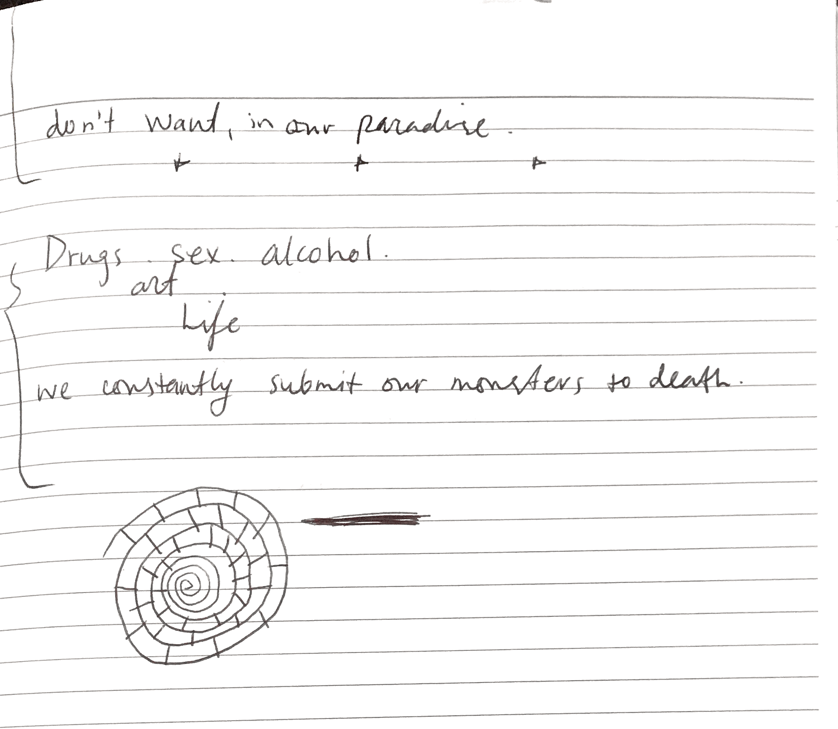 don't want, in our paradise.
Drugs. sex. alcohol.
art
Life
we constantly submit our monsters to death.